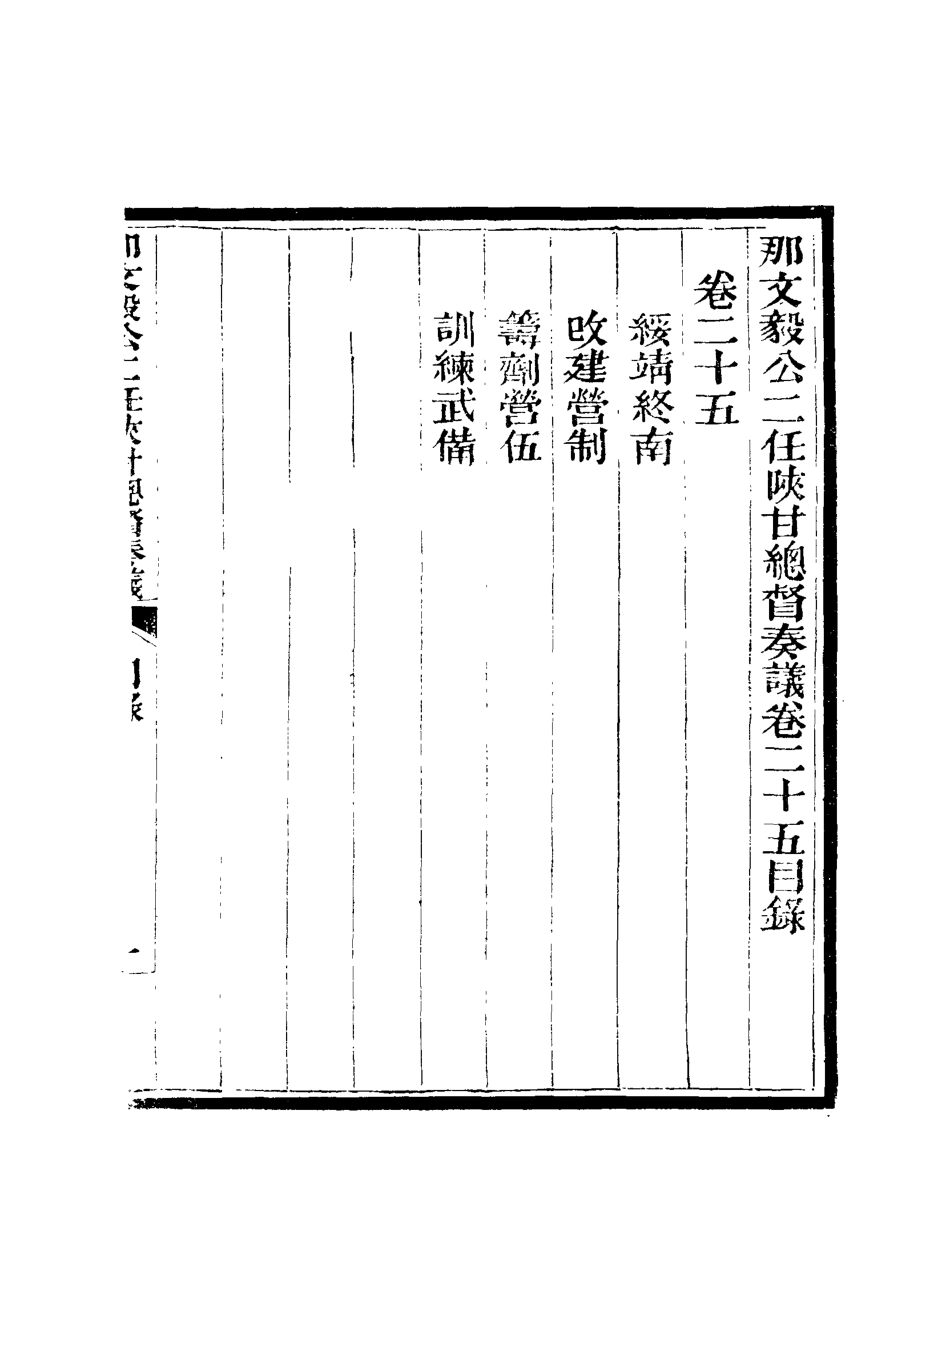 那文毅公二任陝甘總督奏議卷二十五目錄
卷二十五
綏靖終南
改建營制
籌劑營伍
訓練武備
那文毅公二任陝甘總督奏議
目錄
一